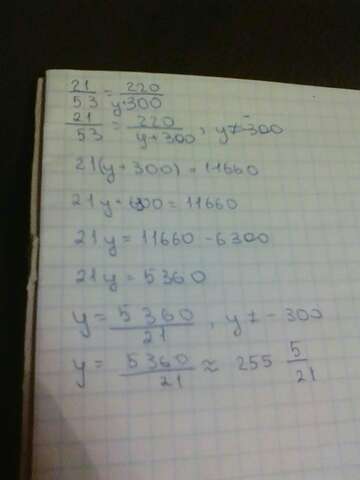 21/53 = 220/y+300
21/53 = 220/y+300, y≠-300
21(y+300) = 11660
21y+6300 = 11660
21y = 11660 - 6300
21y = 5360
y = 5360/21, y≠-300
y = 5360/21 ≈ 255 5/21